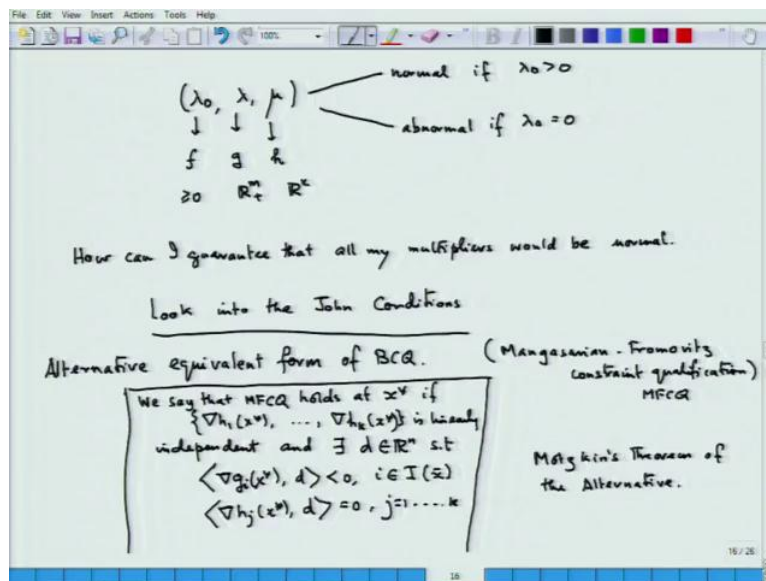 File Edit View Insert Actions Tools Help
100%
B I
(λ₀, λ, μ)
normal if λ₀>0
abnormal if λ₀ =0
↓ ↓ ↓
f g h
≥0 ℝ₊ᵐ ℝᵏ
How can I guarantee that all my multipliers would be normal.
Look into the John Conditions
Alternative equivalent form of BCQ.
(Mangasarian-Fromovitz
constraint qualification)
MFCQ
We say that MFCQ holds at x* if
{∇h₁(x*), ..., ∇hₖ(x*)} is linearly
independent and ∃ d∈ℝⁿ s.t
⟨∇gᵢ(x*), d⟩<0, i∈I(x̄)
⟨∇hⱼ(x*), d⟩=0, j=1....k
Motzkin's Theorem of
the Alternative.
16 / 26
16